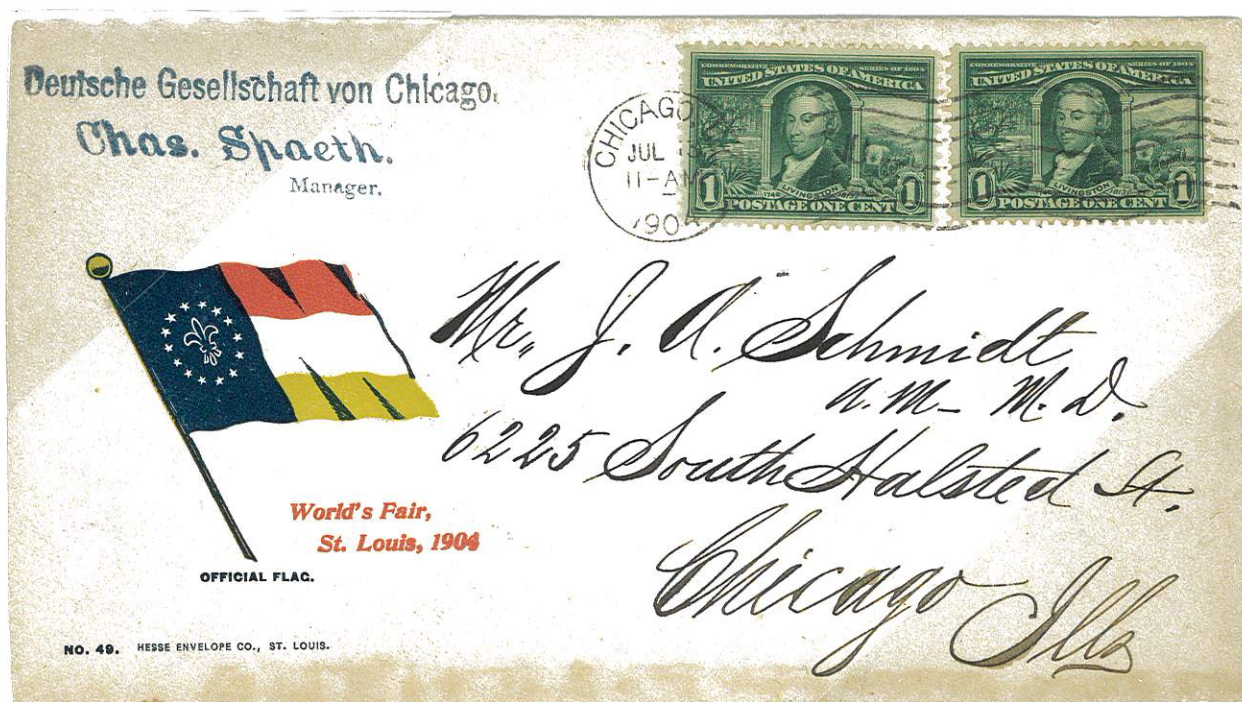 Deutsche Gesellschaft von Chicago.
Chas. Spaeth.
Manager.
CHICAGO
JUL
11-AM
1904
COMMEMORATIVE SERIES OF 1904
UNITED STATES OF AMERICA
LIVINGSTON
1 1
POSTAGE ONE CENT
COMMEMORATIVE SERIES OF 1904
UNITED STATES OF AMERICA
LIVINGSTON
1 1
POSTAGE ONE CENT
Mr. J. A. Schmidt
A.M- M.D.
6225 South Halsted St.
Chicago
Ills
World's Fair,
St. Louis, 1904
OFFICIAL FLAG.
NO. 49. HESSE ENVELOPE CO., ST. LOUIS.